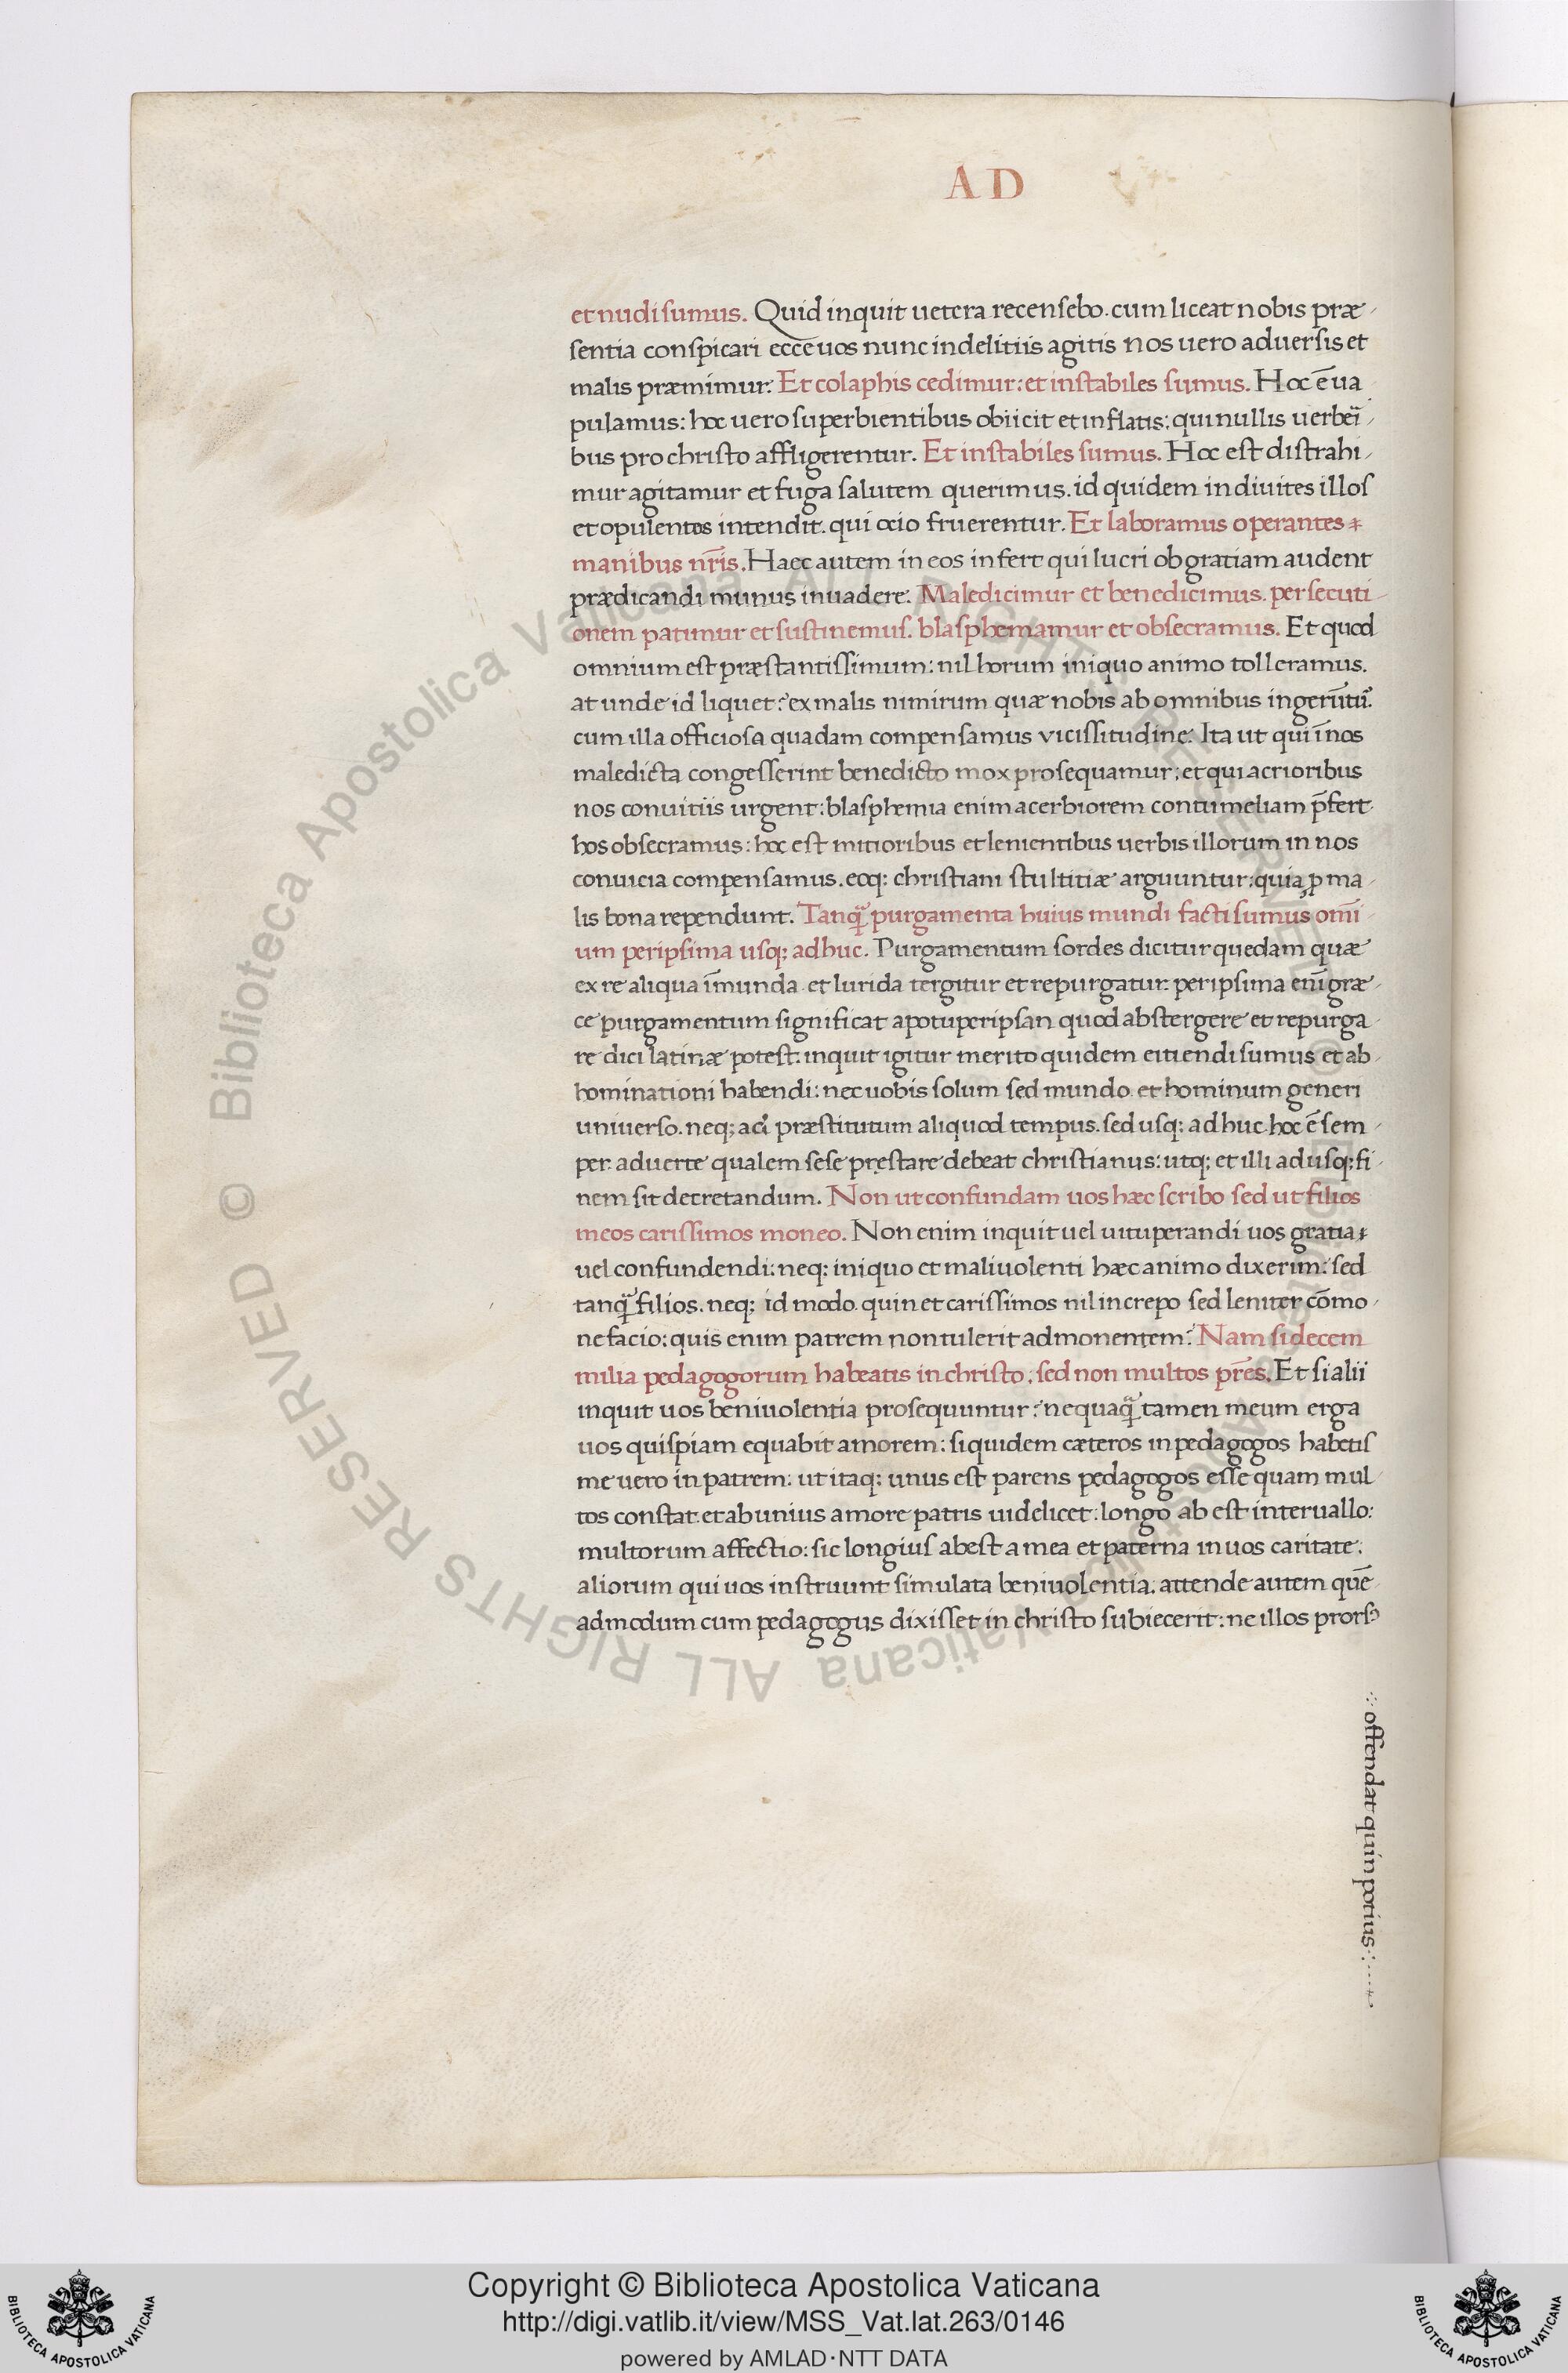 AD
et nudi sumus. Quid inquit uetera recensebo. cum liceat nobis præ
sentia conspicari ecce uos nunc in delitiis agitis nos uero aduersis et
malis præmimur. Et colaphis cedimur: et instabiles sumus. Hoc ē ua
pulamus: hoc uero superbientibus obiicit et inflatis: qui nullis uerberi
bus pro christo affligerentur. Et instabiles sumus. Hoc est distrahi
mur agitamur et fuga salutem querimus. id quidem in diuites illos
et opulentos intendit. qui ocio fruerentur. Et laboramus operantes
manibus nr̄is. Haec autem in eos infert qui lucri ob gratiam audent
prædicandi munus inuadere. Maledicimur et benedicimus. persecuti
onem patimur et sustinemus. blasphemamur et obsecramus. Et quod
omnium est præstantissimum: nil horum iniquo animo tolleramus.
at unde id liquet? ex malis nimirum quæ nobis ab omnibus ingerūtur.
cum illa officiosa quadam compensamus vicissitudine. Ita ut qui ī nos
maledicta congesserint benedicto mox prosequamur; et qui acrioribus
nos conuitiis urgent: blasphemia enim acerbiorem contumeliam p̄fert
hos obsecramus: hoc est mitioribus et lenientibus uerbis illorum in nos
conuicia compensamus. eoq; christiani stultitiæ arguuntur: quia ꝓ ma
lis bona rependunt. Tanq̃ purgamenta huius mundi facti sumus om̄i
um peripsima usq; adhuc. Purgamentum sordes dicitur quedam quæ
ex re aliqua īmunda et lurida tergitur et repurgatur. peripsima enī græ
ce purgamentum significat apotuperipsan quod abstergere et repurga
re dici latinæ potest. inquit igitur merito quidem eitiendi sumus et ab
hominationi habendi: nec uobis solum sed mundo et hominum generi
uniuerso. neq; ad præstitutum aliquod tempus. sed usq; ad huc. hoc ē sem
per. aduerte qualem sese pręstare debeat christianus: utq; et illi ad usq; fi
nem sit decretandum. Non ut confundam uos hæc scribo sed ut filios
meos carissimos moneo. Non enim inquit uel uituperandi uos gratia
uel confundendi: neq; iniquo et maliuolenti hæc animo dixerim: sed
tanq̃ filios. neq; id modo. quin et carissimos nil increpo sed leniter cōmo
nefacio: quis enim patrem non tulerit admonentem? Nam si decem
milia pedagogorum habeatis in christo: sed non multos pr̄es. Et si alii
inquit uos beniuolentia prosequuntur: nequaq̃ tamen meum erga
uos quispiam equabit amorem: siquidem cæteros in pedagogos habetis
me uero in patrem: ut itaq; unus est parens pedagogos esse quam mul
tos constat. et ab unius amore patris uidelicet: longo ab est interuallo:
multorum affectio: sic longius abest a mea et paterna in uos caritate:
aliorum qui uos instruunt simulata beniuolentia. attende autem quē
admodum cum pedagogus dixisset in christo subiecerit: ne illos prors
offendat quin potius
© Biblioteca Apostolica Vaticana ALL RIGHTS RESERVED
© Biblioteca Apostolica Vaticana ALL RIGHTS RESERVED
Copyright © Biblioteca Apostolica Vaticana
http://digi.vatlib.it/view/MSS_Vat.lat.263/0146
powered by AMLAD·NTT DATA
BIBLIOTECA APOSTOLICA VATICANA
BIBLIOTECA APOSTOLICA VATICANA